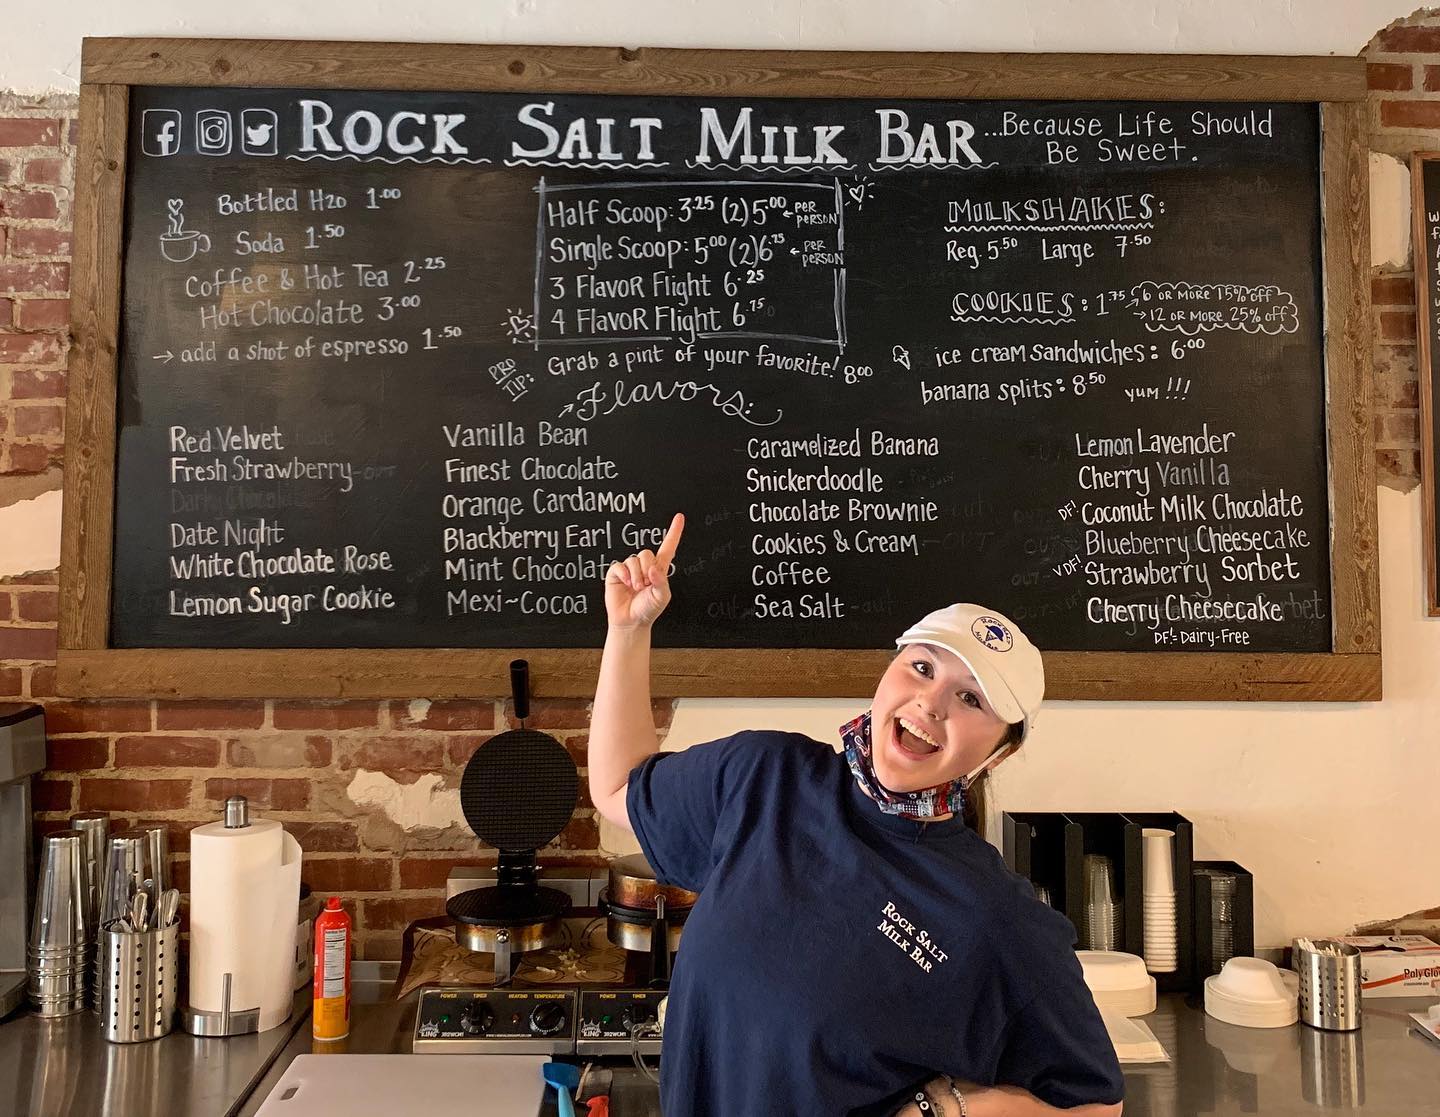 ROCK SALT MILK BAR
...Because Life Should
Be Sweet.
Bottled H2O 1.00
Soda 1.50
Coffee & Hot Tea 2.25
Hot Chocolate 3.00
→ add a shot of espresso 1.50
Half Scoop: 3.25 (2) 5.00 ← PER PERSON
Single Scoop: 5.00 (2) 6.75 ← PER PERSON
3 Flavor Flight 6.25
4 Flavor Flight 6.75
PRO TIP: Grab a pint of your favorite! 8.00
MILKSHAKES:
Reg. 5.50 Large 7.50
COOKIES: 1.75 → 6 OR MORE 15% off
→ 12 OR MORE 25% off
ice cream sandwiches: 6.00
banana splits: 8.50 yum!!!
→ Flavors:
Red Velvet
Fresh Strawberry
Date Night
White Chocolate Rose
Lemon Sugar Cookie
Vanilla Bean
Finest Chocolate
Orange Cardamom
Blackberry Earl Grey
Mint Chocolate
Mexi~Cocoa
Caramelized Banana
Snickerdoodle
Chocolate Brownie
Cookies & Cream
Coffee
Sea Salt
Lemon Lavender
Cherry Vanilla
DF! Coconut Milk Chocolate
Blueberry Cheesecake
V DF! Strawberry Sorbet
Cherry Cheesecake
DF! = Dairy-Free
ROCK SALT
MILK BAR
ROCK SALT
MILK BAR
POWER TIMER HEATING TEMPERATURE
POWER TIMER
KING
KING
Poly Glo